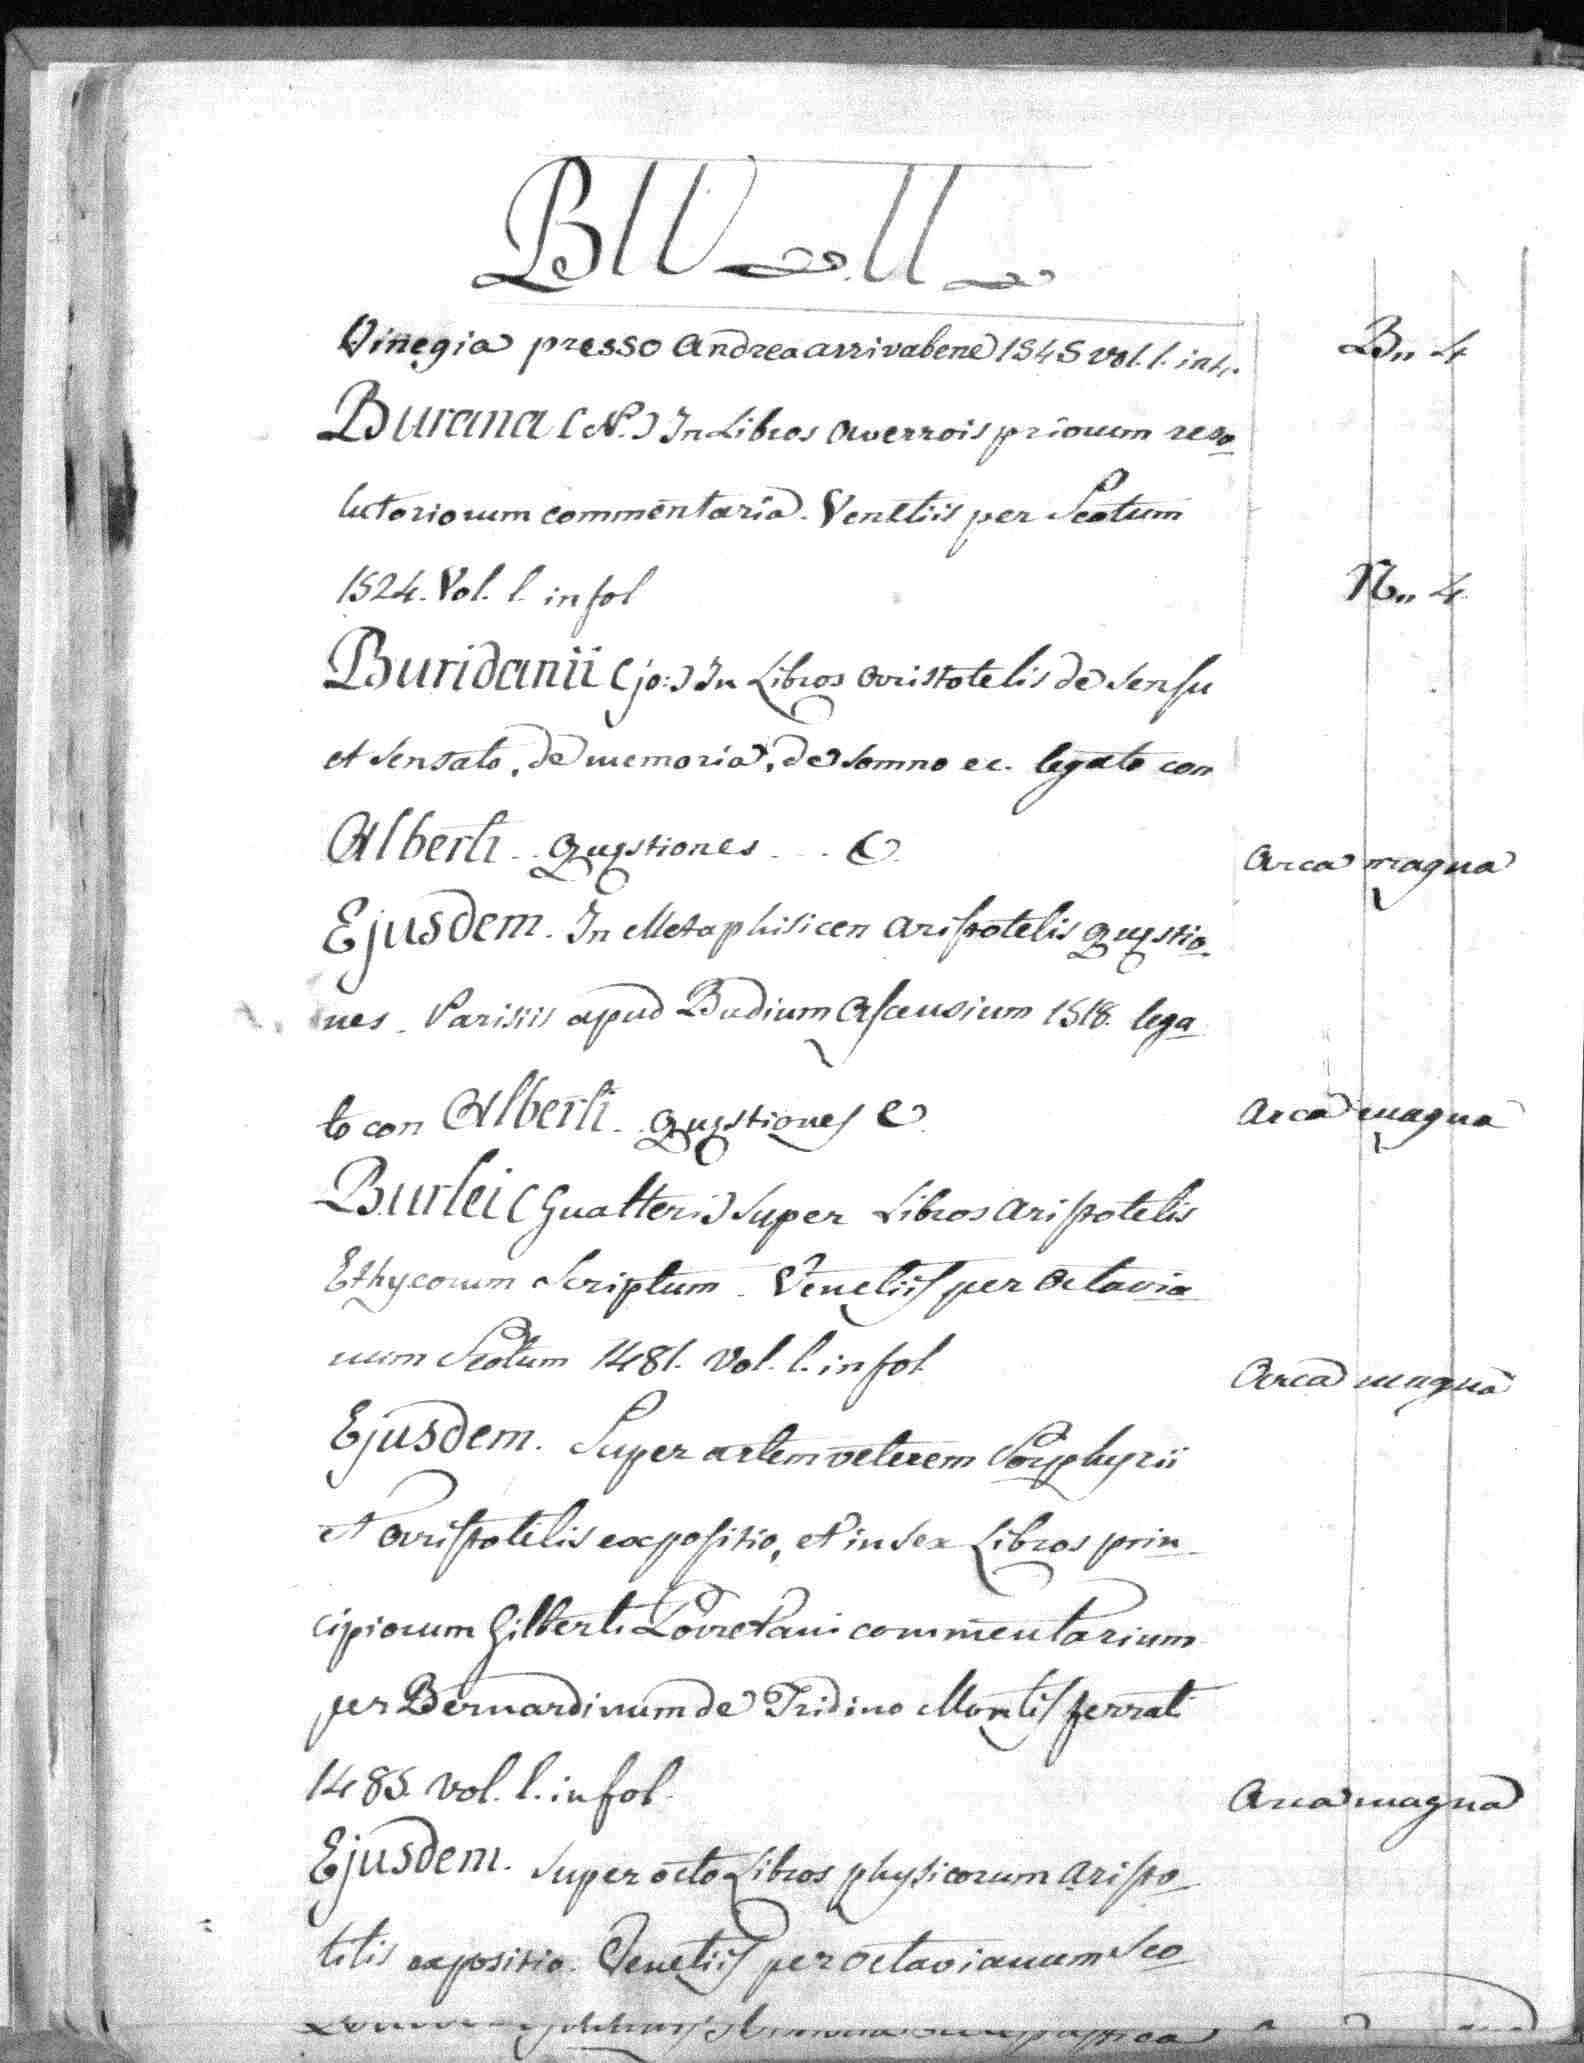 BU U
Vinegia presso Andrea arrivabene 1545 vol. 1. in 4. B„ 4
Burana (N.) In Libros averrois priorum reso
lutoriorum commentaria. Venetiis per Scotum
1524. Vol. 1. in fol N„ 4
Buridanii (jo:) In Libros aristotelis de sensu
et sensato, de memoria, de somno ec. legato con
Alberti.. Quęstiones ... C Arca magna
Ejusdem. In Metaphisicen aristotelis quęstio-
nes. Parisiis apud Badium Ascensium 1518. lega
to con Alberti.. Quęstiones C Arca magna
Burlei (Gualteri) super Libros aristotelis
Ethycorum Scriptum. Venetiis per octavia
num Scotum 1481. Vol. 1. in fol. Arca magna
Ejusdem. Super artem veterem Porphyrii
et aristotelis expositio, et in sex Libros prin
cipiorum Gilberti Porretani commentarium
per Bernardinum de Tridino Montis ferrati
1485. vol. 1. in fol. Arca magna
Ejusdem. super octo Libros physicorum aristo
telis expositio. Venetiis per octavianum Sco